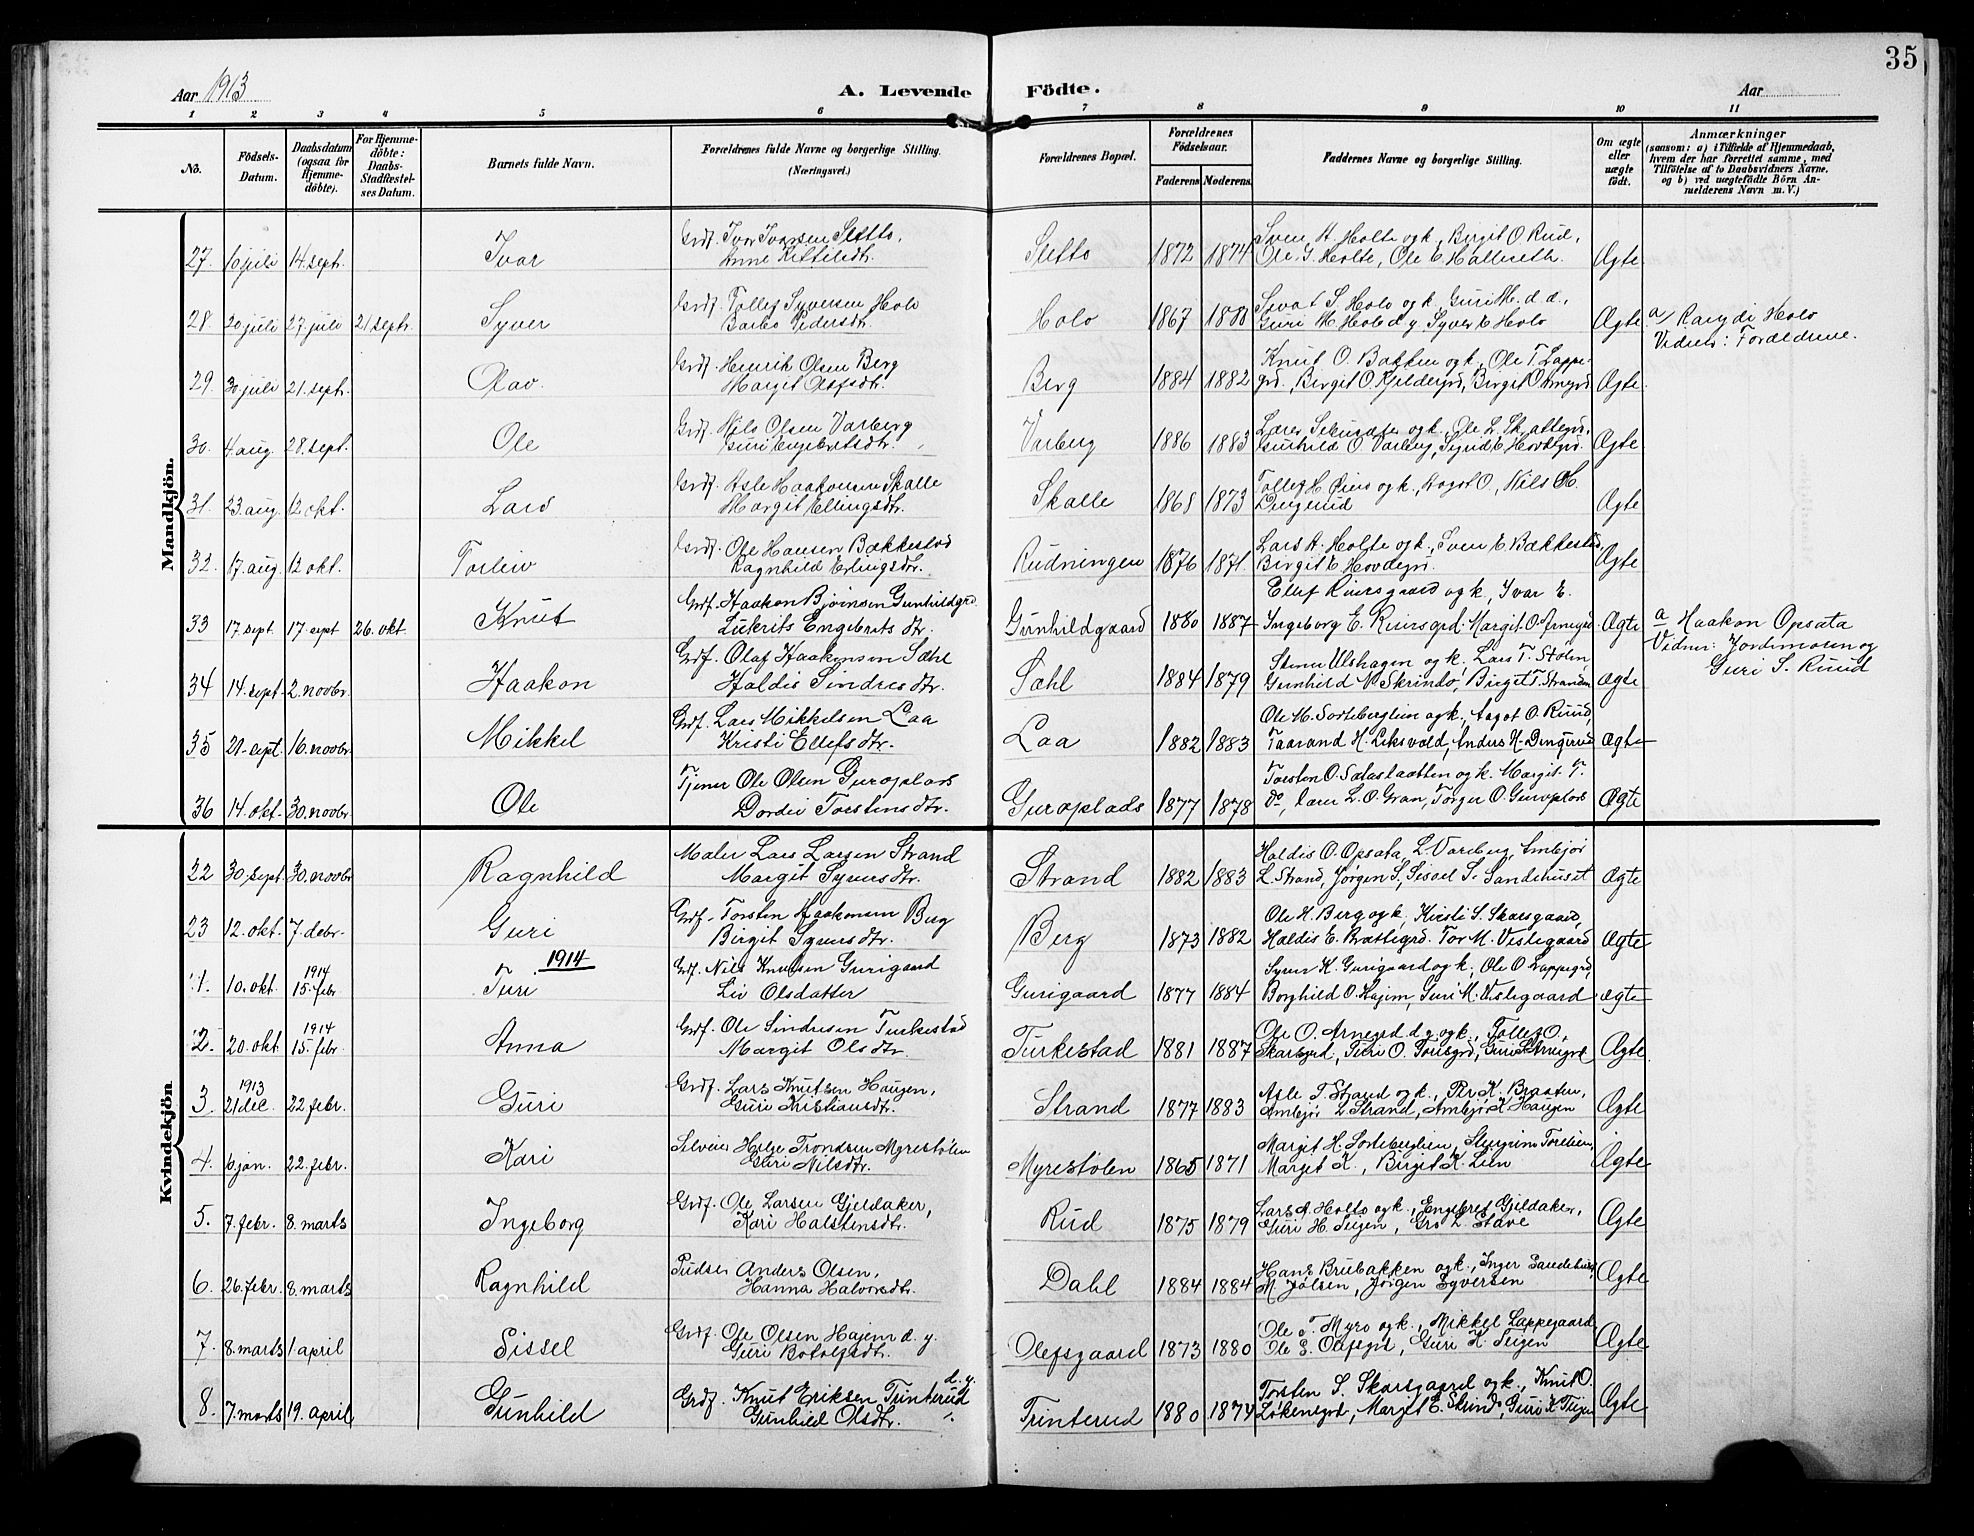 35
Aar 1913
A. Levende Födte.
Aar
1 2 3 4 5 6 7 8 9 10 11
Nö.
Födsels-Datum.
Daabsdatum (ogsaa for Hjemmedöbte).
For Hjemmedöbte: Daabs-Stadfæstelses Datum.
Barnets fulde Navn.
Forældrenes fulde Navne og borgerlige Stilling. (Næringsvei.)
Forældrenes Bopæl.
Forældrenes Födselsaar.
Faderens. Moderens.
Faddernes Navne og borgerlige Stilling.
Om ægte eller uægte födt.
Anmærkninger (saasom: a) i Tilfælde af Hjemmedaab, hvem der har forrettet samme, med Tilföielse af to Daabsvidners Navne. og b) ved uægtefödte Börn Anmelderens Navn m. V.)
Mandkjön.
27. 10 juli 14. sept. Ivar Grdf. Ivar Ivarsen Sletto, Anne Kittilsdtr. Sletto 1872 1874 Sven A. Holte og k., Birgit O. Rud, Ole G. Holte, Ole E. Ægte
28. 20 juli 27. juli 21 sept. Syver Grdf. Tollef Syversen Holo Barbo Pedersdtr. Holo 1867 1880 S. Holo og k., Guri M. d. d., Guri M. Holo d y Syver E Holo Ægte a/ Holo
Vidner: Forældrene.
29. 30 juli 21. sept. Olav. Grdf. Henrik Olsen Berg Margit Olsdtr. Berg 1884 1882 Knut O. Bakken og k., Ole T. Lappegrd., Birgit O. Birgit O Arnegrd Ægte
30. 4 aug. 28. sept. Ole Grdf. Nils Olsen Varberg Guri Engebretsdtr. Varberg 1886 1883 Lars og k., Ole L. Gunhild O. Varberg, Sigrid E Hovdegrd. Ægte
31. 23. aug. 12 okt. Lars Grdf. Asle Haakonsen Skalle Margit Ellingsdtr. Skalle 1868 1873 Tollef H. og k., Aagot O, Nils H. Dengerud Ægte
32. 17. aug. 12 okt. Torleiv Grdf. Ole Hansen Bækkestad Ragnhild Erlingsdtr. Rudningen 1876 1871. Lars A. Holte og k., Sven E. Bækkestad, Birgit E Hovdegrd. Ægte
33 17. sept. 17. sept 26. okt. Knut Grdf. Haakon Bjørnsen Gunhildgrd. Lukrits Engebrets dtr. Gunhildgaard 1880 1887 Elef Ruirsgaard og k, Ivar E. Ingeborg E. Ruirsgrd. Margit O. Arnegrd. Ægte a Haakon Opsata
Vidner: Jordemoren og Guri S. Ruud
34 14. sept. 2. novbr. Haakon Grdf. Olaf Haakonsen Sæhl Haldis Sindres dtr. Sæhl 1884 1879 Ulshagen og k. Lars T. Stølen Gunhild N. Skrindo, Birgit T. Ægte
35 21. sept. 16. novbr. Mikkel Grdf. Lars Mikkelsen Laa Kristi Ellefs dtr. Laa 1882 1883 Ole M. Sorteberglien og k., Aagot O. Ruud, Taarand H. Leksvold, Anders H. Dengerud Ægte
36 14. okt. 30. novbr. Ole Tjener Ole Olsen Guroplads Dordei Torstens dtr. Guroplads 1877 1878 Torsten O. og k. Margit T. do, Lars L. O. Gran, Torger O. Guroplads Ægte
Kvindekjön
22 30. sept. 30. novbr Ragnhild Maler Lars Larsen Strand Margit Syvers dtr. Strand 1882 1883 Haldis O. Opsata, L. Varberg, Ambjør L. Strand, Jørgen S., Sissel S. Sandehuset Ægte
23 12. okt. 7. debr. Guri Grdf. Torsten Haakonsen Berg Birgit Syvers dtr. Berg 1873 1882 Ole H. Berg og k, Kirsti S. Skarsgaard, Haldis E. Brattegrd. Tor M. Vestegaard Ægte
1914
1. 10. okt. 1914 15. febr Turi Grdf. Nils Knutsen Gurigaard Liv Olsdatter Gurigaard 1877 1884 Syver K. Gurigaard og k, Ole O. Lappegrd, Borghild O. Hajem, Guri M. Vestegaard Ægte
2. 20. okt 1914 15. febr Anna Grdf. Ole Sindresen Turkestad Margit Ols dtr. Turkestad 1881 1887 Ole O. Arnegrd d. y. og k., Tollef O, Skarsgrd, Turi O. Guri S Arnegrd Ægte
3. 1913 21 dec 22 febr. Guri Grdf. Lars Knutsen Haugen, Guri Kristiansdtr. Strand 1877 1883 Asle T. Strand og k., Per K. Braaten, Ambjør L Strand, Ambjør K Haugen Ægte
4. 6 jan. 22. febr. Kari Selveier Helge Trondsen Myrestølen Guri Nilsdtr. Myrestølen 1865 1871 Margit H. Sorteberglien, Margit K., Birgit K. Lien Ægte
5. 7. febr. 8. marts Ingeborg Grdf. Ole Larsen Gjeldaker, Kari Halstensdtr. Rud 1875 1879 Lars A Holto og k., Engebret Gjeldaker, Guri H. Teigen, Gro L. Stave Ægte
6. 26. febr. 8. marts Ragnhild Pudser Anders Olsen, Hanna Halvorsdtr. Dahl 1884 1884 Hans Brubakken og k., Inger Sandehus, M Jølsen, Jørgen Syversen Ægte
7. 8. marts 1 april Sissel Grdf. Ole Olsen Hajem d. y. Guri Botolfsdtr. Olefsgaard 1873 1880 Ole T. Myro og k., Mikkel Lappegaard, Ole S. Olefsgrd, Guri K. Teigen Ægte
8. 7. marts 19. april Gunhild Grdf. Knut Eriksen Trinterud d. y. Gunhild Olsdtr. Trinterud 1880 1874 Torsten S. Skarsgaard og k., Knut O. Løkenegrd, Margit E. Skrindo, Guri K Teigen Ægte